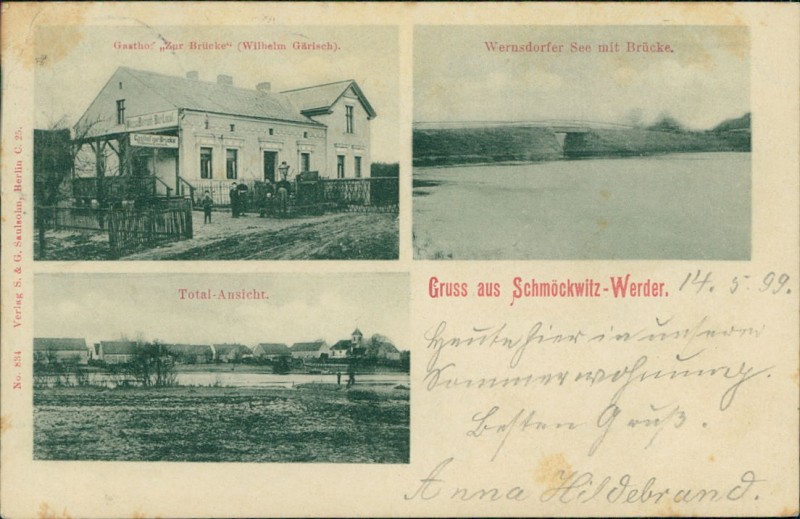 Gasthof „Zur Brücke“ (Wilhelm Gärisch).
Wernsdorfer See mit Brücke.
Total-Ansicht.
Gruss aus Schmöckwitz-Werder. 14. 5. 99.
Heute hier in unserem
Sommerwohnung.
Besten Gruß.
Anna Hildebrand.
No. 834 Verlag S. & G. Saulsohn, Berlin C. 25.